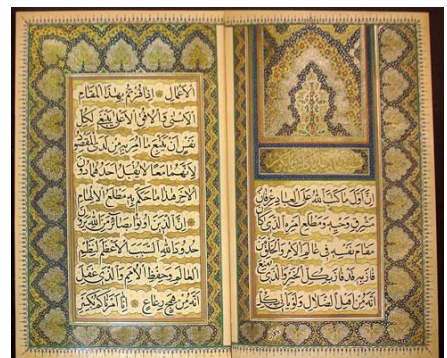 إن أول ما كتب الله على العباد عرفان
مشرق وحيه ومطلع أمره الذي كان
مقام نفسه في عالم الأمر والخلق من
فاز به قد فاز بكل الخير والذي منع
إنه من أهل الضلال ولو يأتي بكل
الأعمال * إذا فزتم بهذا المقام
الأسنى والأفق الأعلى ينبغي لكل
نفس أن يتبع ما أمر به من لدى المقصود
لأنهما معا لا يقبل أحدهما دون
الآخر هذا ما حكم به مطلع الإلهام
* إن الذين أوتوا بصائر من الله يرون
حدود الله السبب الأعظم لنظم
العالم وحفظ الأمم والذي غفل
إنه من همج رعاع * إنا أمرناكم بكسر